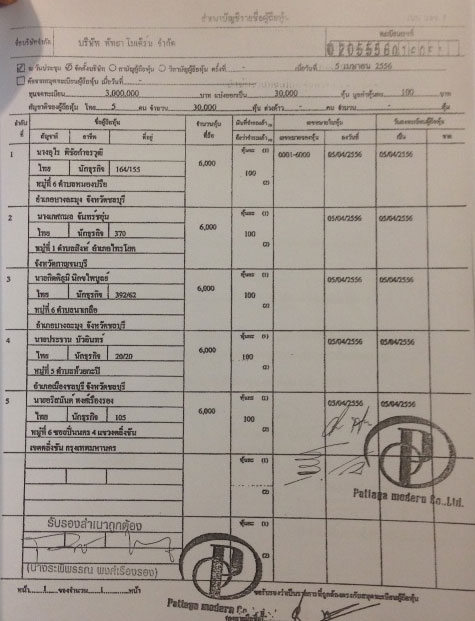 สำเนาบัญชีรายชื่อผู้ถือหุ้น
ชื่อบริษัทจำกัด บริษัท พัทยา โมเดิร์น จำกัด
ทะเบียนเลขที่
ณ วันประชุม จัดตั้งบริษัท สามัญผู้ถือหุ้น วิสามัญผู้ถือหุ้น ครั้งที่ เมื่อวันที่ 5 เมษายน 2556
คัดจากสมุดทะเบียนผู้ถือหุ้น เมื่อวันที่
ทุนจดทะเบียน 3,000,000 บาท แบ่งออกเป็น 30,000 หุ้น มูลค่าหุ้นละ 100
สัญชาติของผู้ถือหุ้น ไทย 5 คน จำนวน 30,000 หุ้น คน จำนวน หุ้น
ลำดับที่ ชื่อผู้ถือหุ้น จำนวนหุ้นที่ถือ เลขหมายใบหุ้น วันลงทะเบียนผู้ถือหุ้น
สัญชาติ อาชีพ ที่อยู่ เลขหมายของหุ้น ลงวันที่ เป็น ขาด
1 6,000 หุ้นละ (1) 0001-6000 05/04/2556 05/04/2556
ไทย นักธุรกิจ 164/155 100
หมู่ที่ 6 ตำบลหนองปรือ (2)
อำเภอบางละมุง จังหวัดชลบุรี
2 6,000 หุ้นละ (1) 05/04/2556 05/04/2556
ไทย นักธุรกิจ 370 100
หมู่ที่ 1 ตำบลสิงห์ อำเภอไทรโยค (2)
จังหวัดกาญจนบุรี
3 6,000 หุ้นละ (1) 05/04/2556 05/04/2556
ไทย นักธุรกิจ 392/62 100
หมู่ที่ 6 ตำบลนาเกลือ (2)
อำเภอบางละมุง จังหวัดชลบุรี
4 6,000 หุ้นละ (1) 05/04/2556 05/04/2556
ไทย นักธุรกิจ 20/20 100
หมู่ที่ 5 ตำบลห้วยกะปิ (2)
อำเภอเมืองชลบุรี จังหวัดชลบุรี
5 6,000 หุ้นละ (1) 05/04/2556 05/04/2556
ไทย นักธุรกิจ 105 100
หมู่ที่ 6 ซอยปิ่นนคร 4 แขวงตลิ่งชัน (2)
เขตตลิ่งชัน กรุงเทพมหานคร
หุ้นละ (1)
P
(2)
Pattaya modern Co.,Ltd.
รับรองสำเนาถูกต้อง
หุ้นละ (1)
P
(นางระพีพรรณ พงศ์เรืองรอง)
(2)
หน้า 1 ของจำนวน 1 หน้า
ขอรับรองว่าเป็นรายการที่ถูกต้องตรงกับสมุดทะเบียนผู้ถือหุ้น
Pattaya modern Co